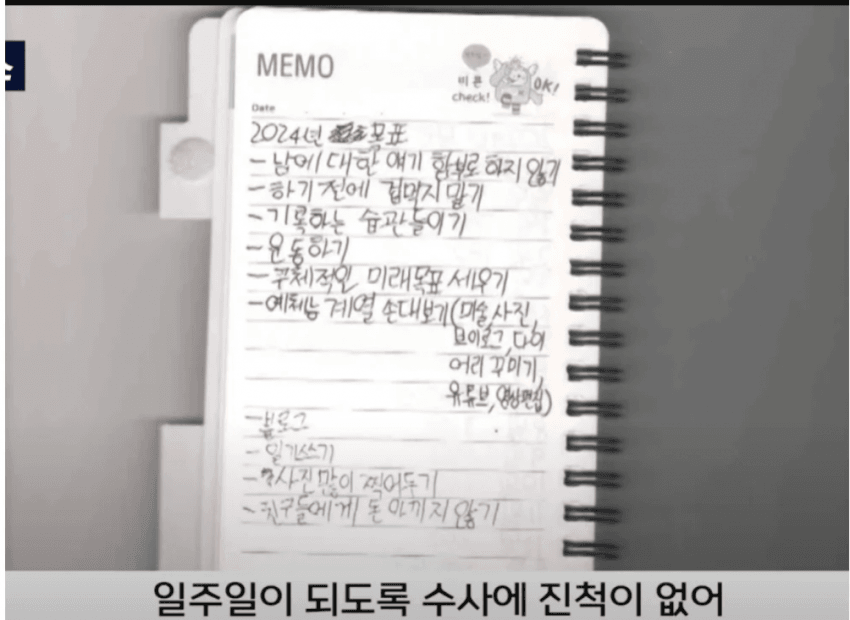 MEMO
비른
check!
OK!
Date
2024년 목표
- 남에 대한 얘기 함부로 하지 않기
- 하기 전에 겁먹지 말기
- 기록하는 습관들이기
- 운동하기
- 구체적인 미래목표 세우기
- 예체능 계열 손대보기(미술,사진,
브이로그,다이
어리 꾸미기,
유튜브,영상편집)
- 블로그
- 일기쓰기
- 사진 많이 찍어두기
- 친구들에게 돈 아끼지 않기
일주일이 되도록 수사에 진척이 없어